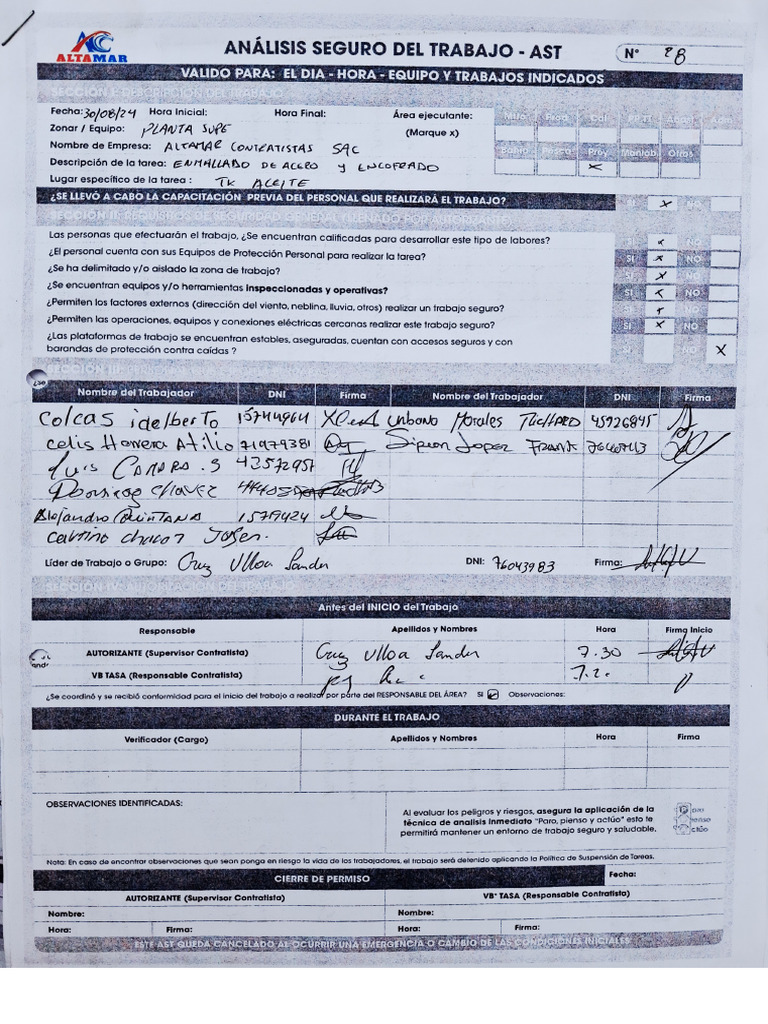 ALTAMAR
ANÁLISIS SEGURO DEL TRABAJO - AST
N° 28
VALIDO PARA: EL DIA - HORA - EQUIPO Y TRABAJOS INDICADOS
SECCIÓN I: DESCRIPCIÓN DEL TRABAJO
Fecha: 30/08/24 Hora Inicial: Hora Final: Área ejecutante:
Zonar / Equipo: PLANTA SUPE (Marque x)
Nombre de Empresa: ALTAMAR CONTRATISTAS SAC
Descripción de la tarea: ENMALLADO DE ACERO Y ENCOFRADO
Lugar específico de la tarea : TK ACEITE
Mtto Prod Cal PP.TT Acml Adm
Bahía Pesca Proy Maniob Otros
X
¿SE LLEVÓ A CABO LA CAPACITACIÓN PREVIA DEL PERSONAL QUE REALIZARÁ EL TRABAJO? SI X NO
SECCIÓN II: REQUISITOS DE SEGURIDAD GENERAL (LLENADO POR AUTORIZANTE)
Las personas que efectuarán el trabajo, ¿Se encuentran calificadas para desarrollar este tipo de labores? SI x NO
¿El personal cuenta con sus Equipos de Protección Personal para realizar la tarea? SI x NO
¿Se ha delimitado y/o aislado la zona de trabajo? SI x NO
¿Se encuentran equipos y/o herramientas inspeccionadas y operativas? SI x NO
¿Permiten los factores externos (dirección del viento, neblina, lluvia, otros) realizar un trabajo seguro? SI x NO
¿Permiten las operaciones, equipos y conexiones eléctricas cercanas realizar este trabajo seguro? SI x NO
¿Las plataformas de trabajo se encuentran estables, aseguradas, cuentan con accesos seguros y con
barandas de protección contra caídas ? SI NO X
SECCIÓN III:
Nombre del Trabajador DNI Firma Nombre del Trabajador DNI Firma
Colcas idelberto 15744964 Urbano Morales Richard 45926845
Celis Herrera Atilio 71979381 Sipion Lopez FRANK
Luis 43572957
Domingo CHAVEZ
Alejandro QUINTANA 1579424
Líder de Trabajo o Grupo: Cruz Ulloa Sander DNI: 76043983 Firma:
SECCIÓN IV: AUTORIZACIÓN DEL TRABAJO
Antes del INICIO del Trabajo
Responsable Apellidos y Nombres Hora Firma Inicio
AUTORIZANTE (Supervisor Contratista) Cruz Ulloa Sander 7.30
VB TASA (Responsable Contratista)
¿Se coordinó y se recibió conformidad para el inicio del trabajo a realizar por parte del RESPONSABLE DEL ÁREA? SI Observaciones:
DURANTE EL TRABAJO
Verificador (Cargo) Apellidos y Nombres Hora Firma
OBSERVACIONES IDENTIFICADAS:
Al evaluar los peligros y riesgos, asegura la aplicación de la
técnica de analisis inmediato "Paro, pienso y actúo" esto te
permitirá mantener un entorno de trabajo seguro y saludable.
Nota: En caso de encontrar observaciones que sean ponga en riesgo la vida de los trabajadores, el trabajo será detenido aplicando la Política de Suspensión de Tareas.
CIERRE DE PERMISO Fecha:
AUTORIZANTE (Supervisor Contratista) VB° TASA (Responsable Contratista)
Nombre: Nombre:
Hora: Firma: Hora: Firma:
ESTE AST QUEDA CANCELADO AL OCURRIR UNA EMERGENCIA O CAMBIO DE LAS CONDICIONES INICIALES